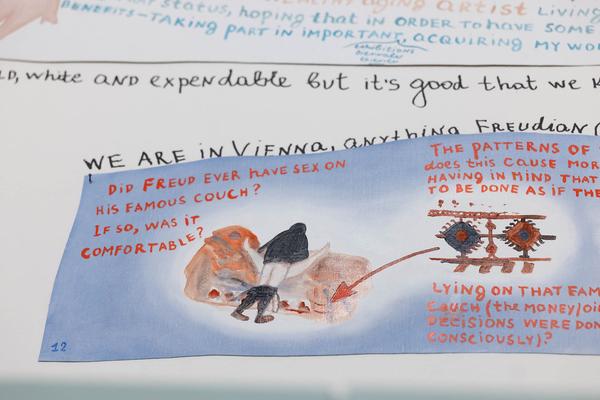 THAT STATUS, HOPING that IN ORDER TO HAVE SOME
BENEFITS-TAKING PART IN IMPORTANT, ACQUIRING MY WO
exhibitions
LD, white AND EXPENDABLE BUT it's good that we K
WE ARE iN VIENNA, anything FREUDIAN (
DID FREUD EVER HAVE SEX ON
HIS FAMOUS COUCH?
IF SO, WAS IT
COMFORTABLE?
THE PATTERNS OF
does this CAUSE MOR
HAVING IN MIND THAT
TO BE DONE AS IF THE
LYING ON THAT FAM
COUCH (the MONEY/OI
DECISIONS WERE DON
CONSCIOUSLY)?
12